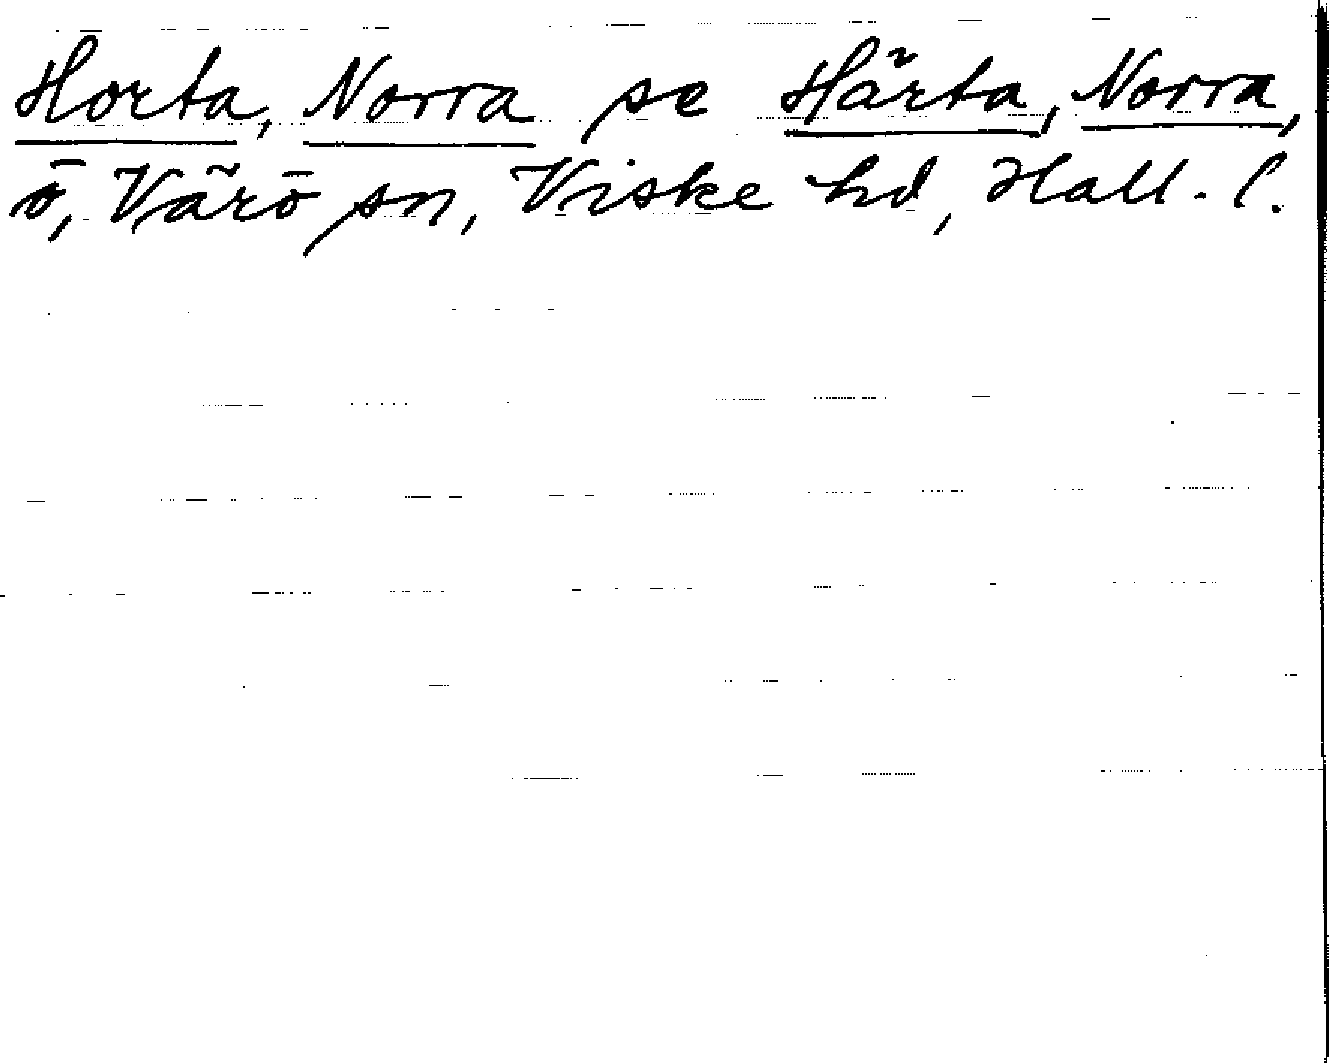 Horta, Norra se Härta, Norra,
ö, Värö sn, Viske hd, Hall. l.